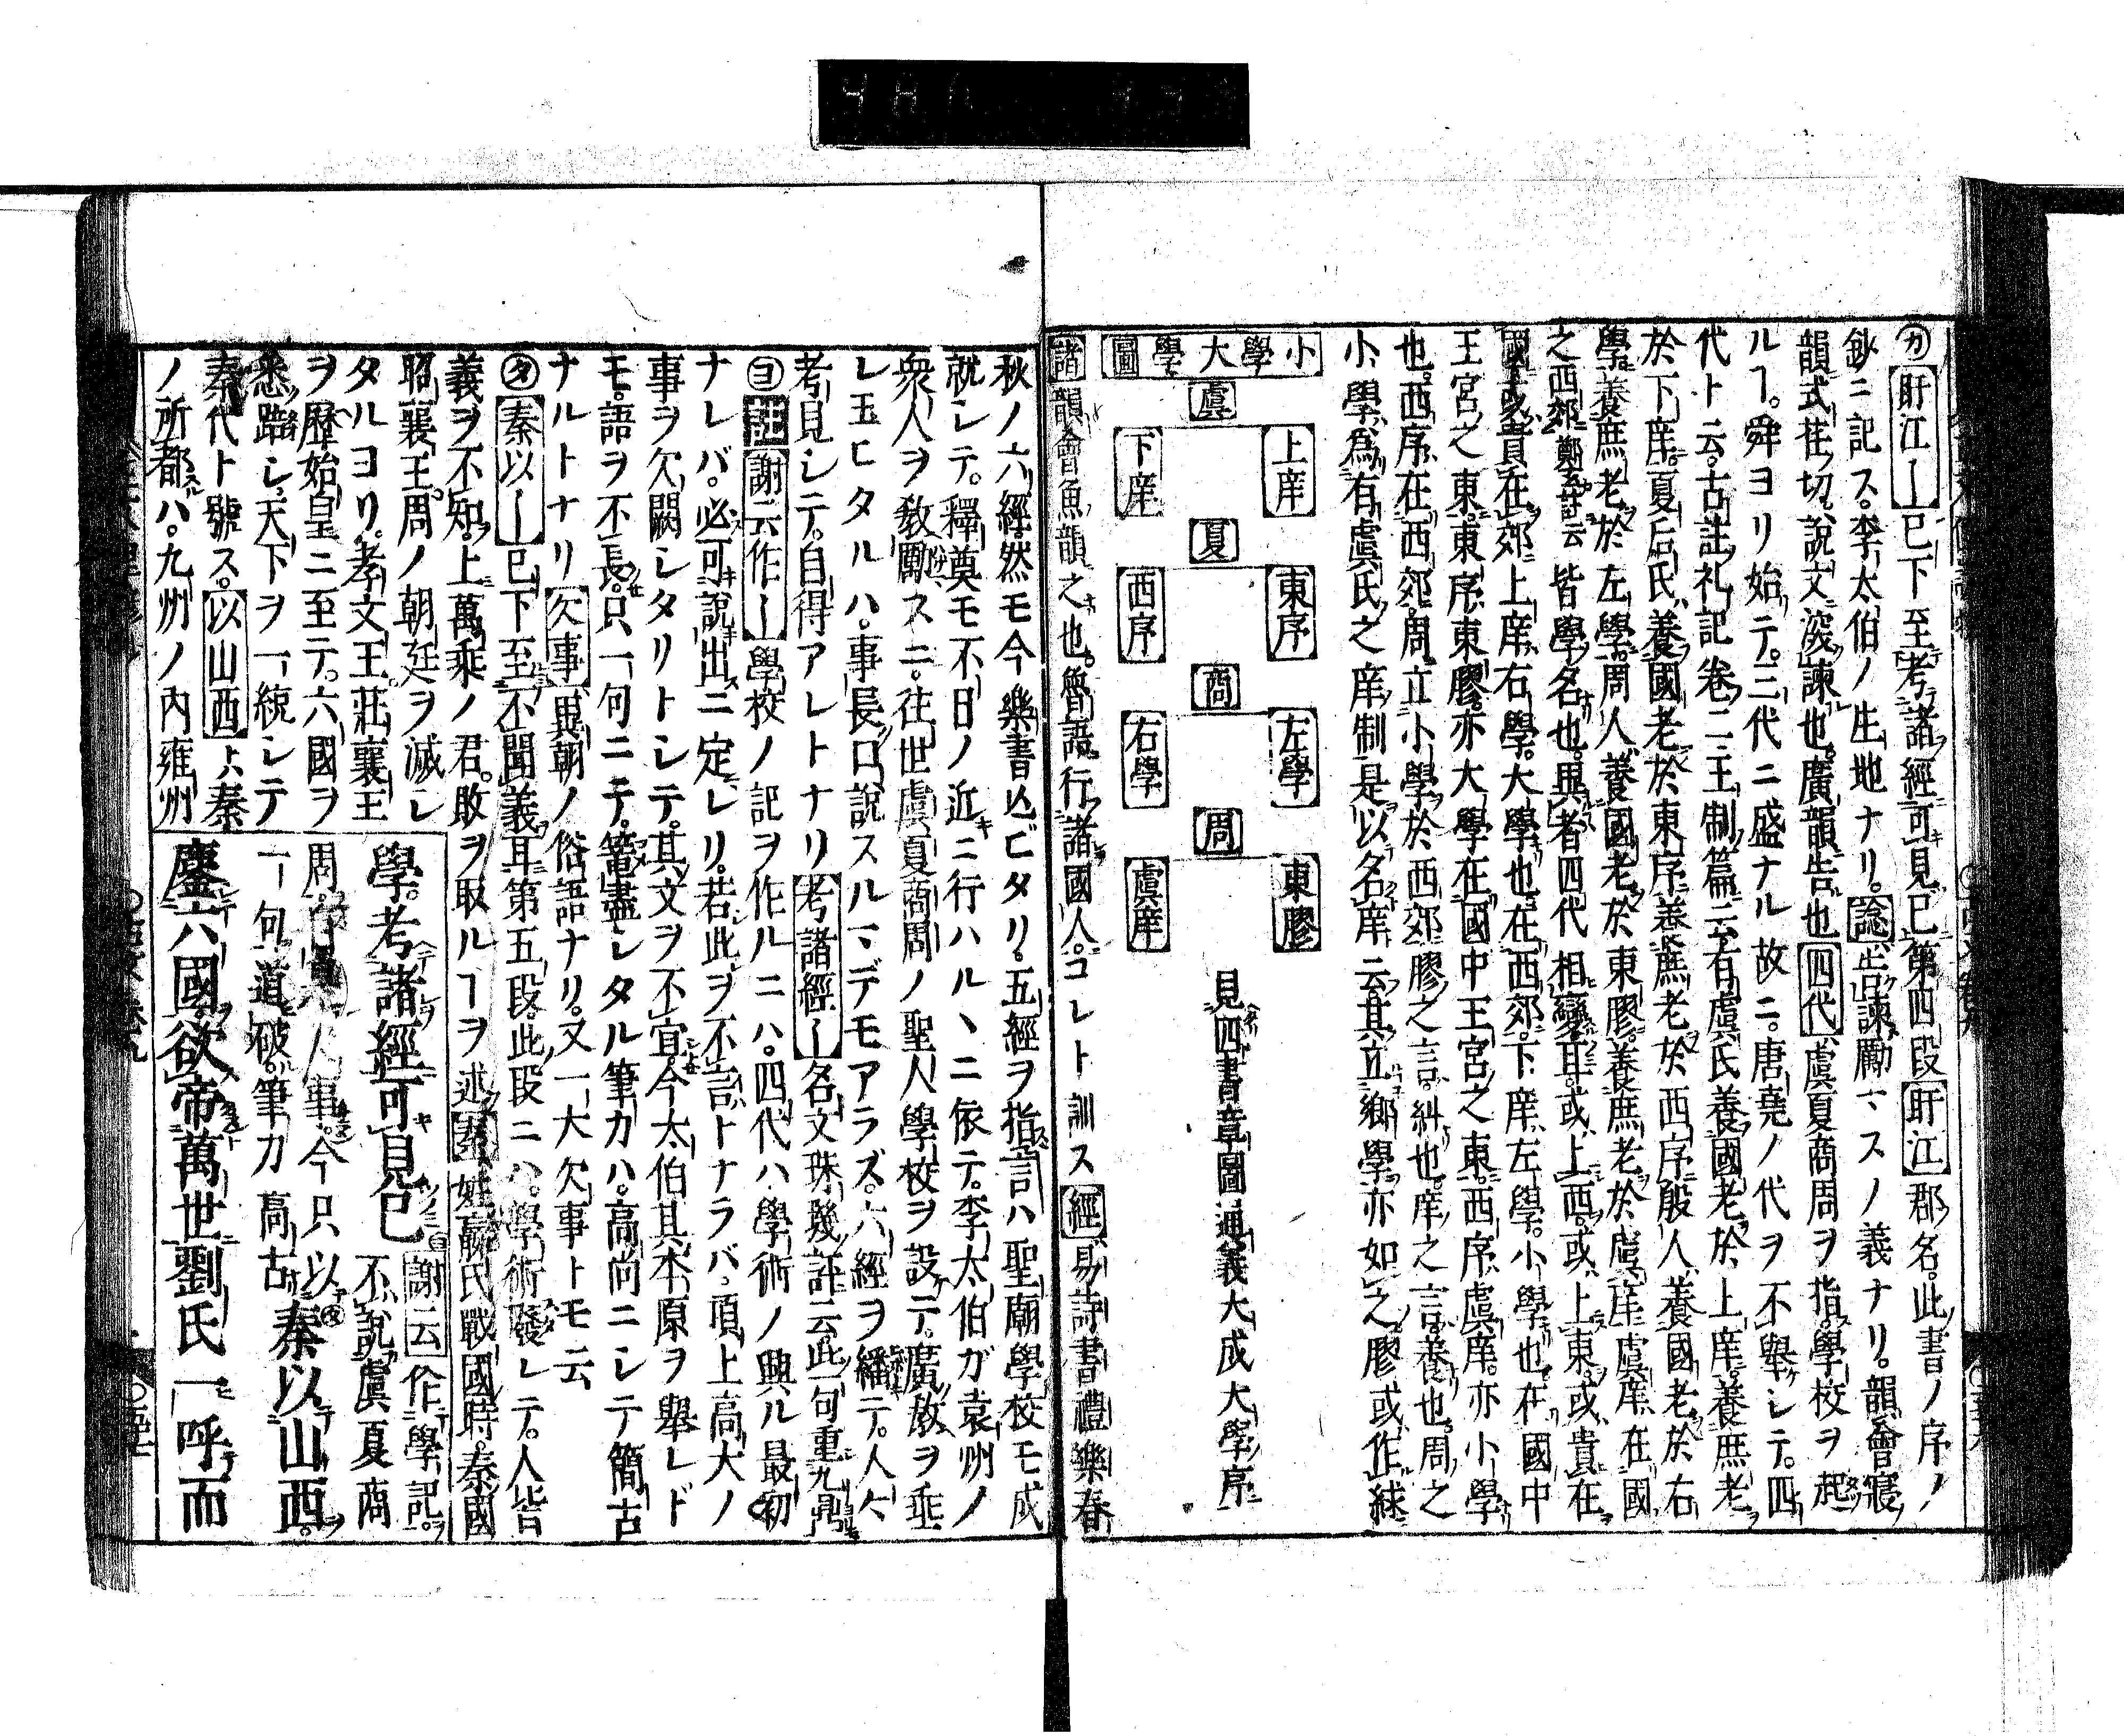 ㋕盱江—已下至考諸經可見已第四段盱江郡名此書ノ序ノ
鈔ニ記ス。李太伯ノ生地ナリ。諗告諫勵ヽスノ義ナリ。韻會寢
韻式荏切。說文深諫也。廣韻告也四代虞夏商周ヲ指。學校ヲ起
ルヿ。舜ヨリ始テ。三代ニ盛ナル故ニ。唐堯ノ代ヲ不舉シテ。四
代ト云。古註礼記卷二王制篇云有虞氏養國老於上庠。養庶老
於下庠。夏后氏養國老於東序養庶老於西序殷人養國老於右
學。養庶老於左學。周人養國老於東膠。養庶老於虞庠虞庠在國
之西郊鄭玄註云皆學名也。異者四代相變耳。或上西。或上東。或貴在
國。或貴在郊上庠右學。大學也在西郊。下庠左學。小學也在國中
王宮之東。東序東膠。亦大學在國中王宮之東。西序虞庠。亦小學
也。西序在西郊。周立小學於西郊膠之言。糾也。庠之言養也。周之
小學爲有虞氏之庠制是以名庠云其立鄉學亦如之膠或作絿
小學大學圖
虞
上庠
下庠
夏
東序
西序
商
左學
右學
周
東膠
虞庠
見四書章圖通義大成大學序
諸韻會魚韻之也。魯語。行諸國人。コレト訓ス經易詩書禮樂春
秋ノ六經。然モ今樂書亾ビタリ。五經ヲ指言ハ聖廟學校モ成
就シテ。釋奠モ不日ノ近ニ行ハルヽニ依テ。李太伯ガ袁州ノ
衆人ヲ教勵スニ。往世虞夏商周ノ聖人學校ヲ設テ。廣教ヲ垂
レ玉ヒタルハ。事長口說スルヽデモアラズ。六經ヲ繙テ。人々
考見シテ。自得アレトナリ考諸經—名文珠璣評云此一句重九鼎
㋵註謝云作—學校ノ記ヲ作ルニハ。四代ハ學術ノ興ル最初
ナレバ。必可說出ニ定レリ。若此ヲ不言トナラバ。項上高大ノ
事ヲ欠闕シタリトシテ。其文ヲ不宜今太伯其本原ヲ舉レド
モ。語ヲ不長。只一句ニテ。籠盡レタル筆力ハ。高尚ニシテ簡古
ナルトナリ欠事異朝ノ俗語ナリ。又一大欠事トモ云
㋟秦以—已下至不聞義耳第五段。此段ニハ。學術發シテ。人皆
義ヲ不知。上萬乘ノ君。敗ヲ取ルヿヲ述秦姓嬴氏戰國時。秦國
昭襄王周ノ朝廷ヲ滅シ
タルヨリ。孝文王莊襄王
ヲ歷始皇ニ至テ。六國ヲ
悉踣シ天下ヲ一統シテ
秦代ト號ス。以山西ト八秦
ノ所都ハ。九州ノ內雍州
學。考諸經可見已謝云作學記。
不說虞夏商
周人事。今只以
一句道破。筆力高古秦以山西。
鏖六國。欲帝萬世劉氏一呼而